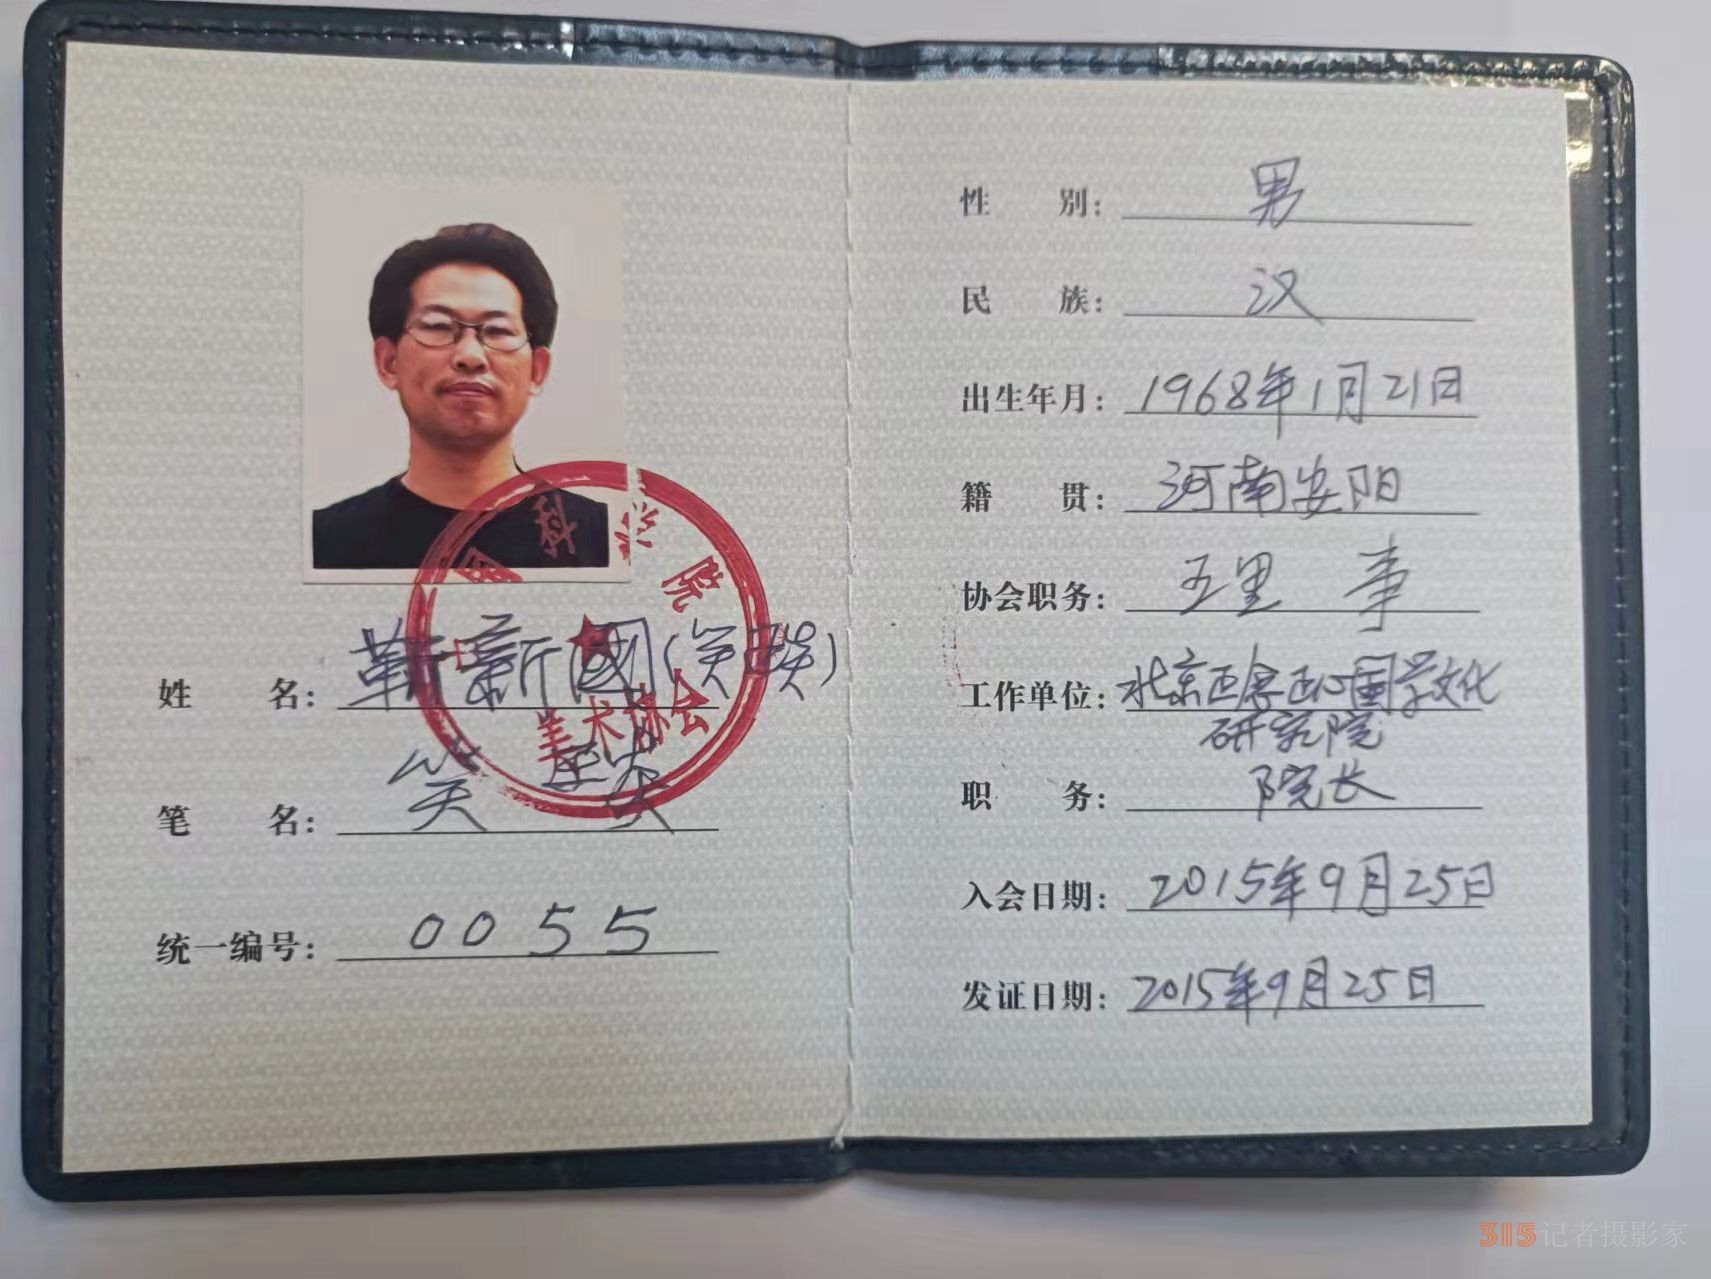 姓 名: 靳新國(笑琰)
笔 名: 笑 琰
统一编号: 0055
科学院
美术协会
性 别: 男
民 族: 汉
出生年月: 1968年1月21日
籍 贯: 河南安阳
协会职务: 理 事
工作单位: 北京正念正心国学文化
研究院
职 务: 院长
入会日期: 2015年9月25日
发证日期: 2015年9月25日
315记者摄影家